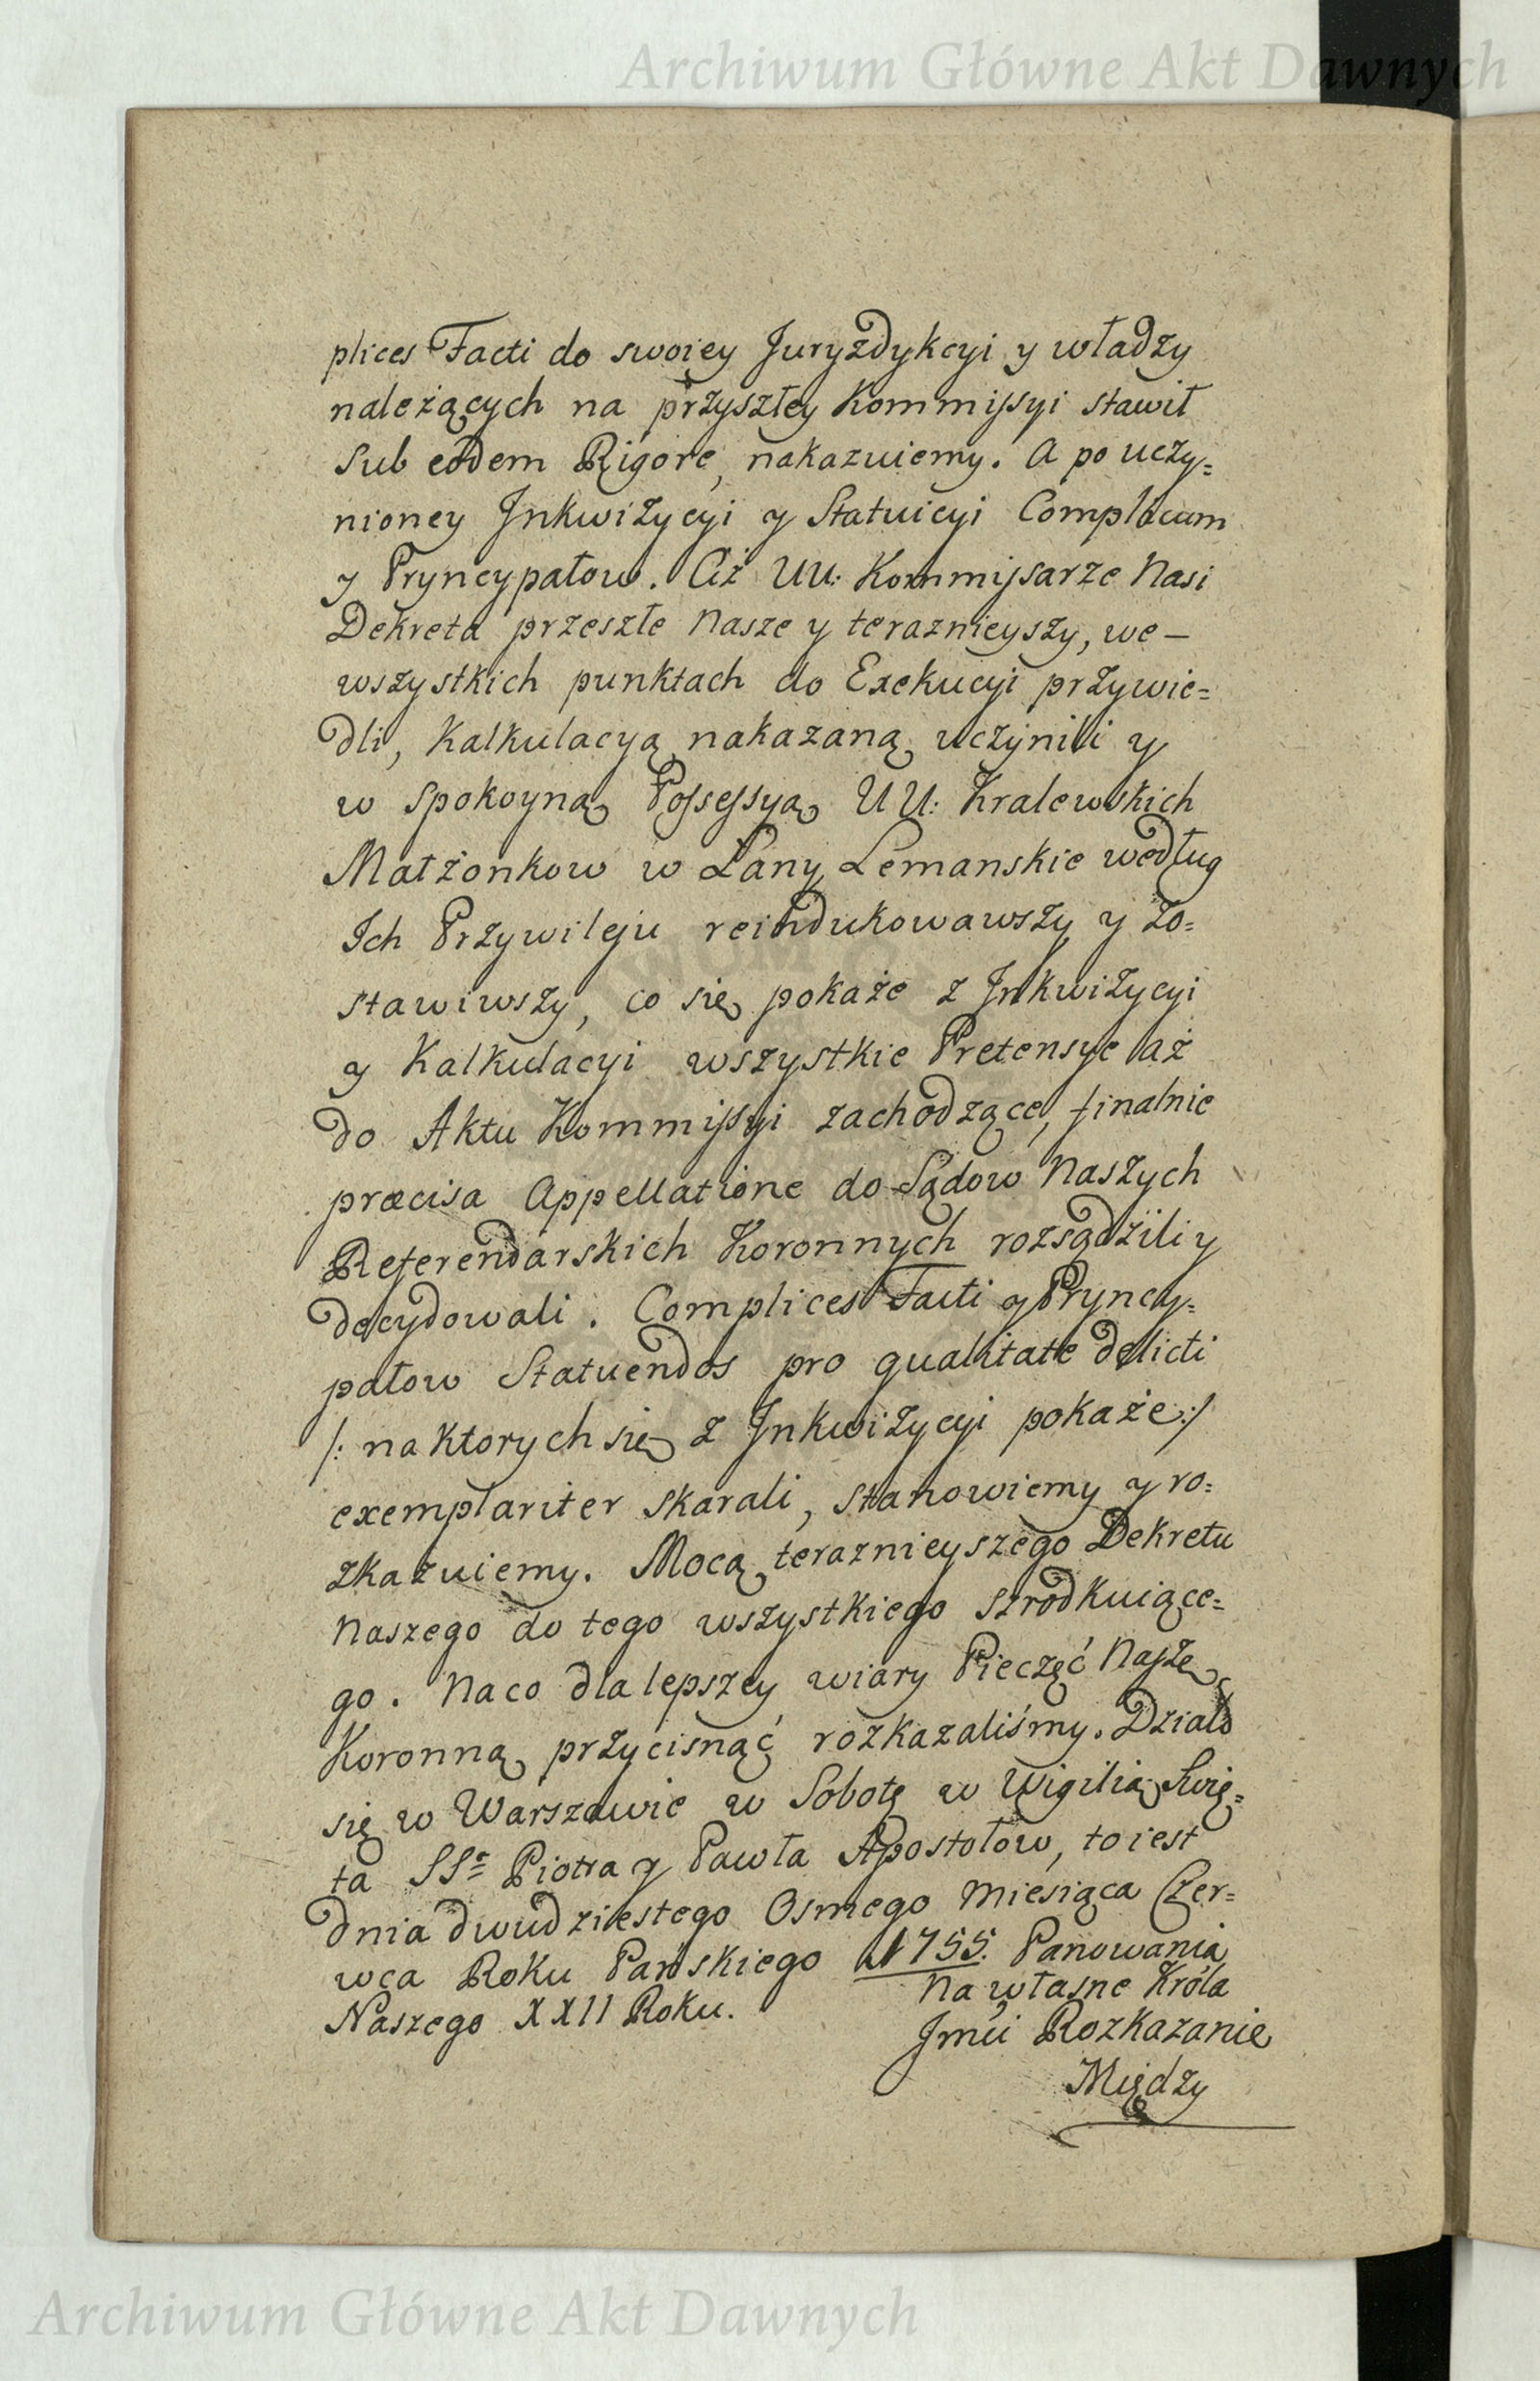 Archiwum Główne Akt Dawnych
plices Facti do swoiey Juryzdykcyi y władzy
należących na przyszłey Kommissyi stawił
sub eodem Rigore, nakazuiemy. A po uczy=
nioney Jnkwizycyi y Statuicyi Complicum
y Pryncypałow. Ciż UU: Kommissarze Nasi
Dekreta przeszłe Nasze y teraznieyszy, we–
wszystkich punktach do Exekucyi przywie=
dli, Kalkulacyą nakazaną uczynili y
w spokoyną Possessyą UU: Kralewskich
Małżonkow w Łany Lemanskie według
Ich Przywileju reindukowawszy y zo=
stawiwszy, co się pokaże z Jnkwizycyi
y Kalkulacyi wszystkie Pretensye aż
do Aktu Kommissyi zachodzące, finalnie
præcisa Appellatione do Sądow Naszych
Referendarskich Koronnych rozsądzili y
decydowali. Complices Facti y Pryncy=
pałow Statuendos pro qualitate delicti
/: na ktorych się z Jnkwizycyi pokaże :/
exemplariter skarali, stanowiemy y ro=
zkazuiemy. Mocą teraznieyszego Dekretu
Naszego do tego wszystkiego szrodkuiące=
go. Na co dla lepszey wiary Pieczęć Naszę
Koronną przycisnąć rozkazaliśmy. Działo
się w Warszawie w Sobotę w Wigilią Swię=
ta SSc Piotra y Pawła Apostołow, to iest
dnia dwudziestego Osmego Miesiąca Czer=
wca Roku Pańskiego 1755. Panowania
Naszego XXII Roku.
Na własne Króla
Jmći Rozkazanie
Między
Archiwum Główne Akt Dawnych